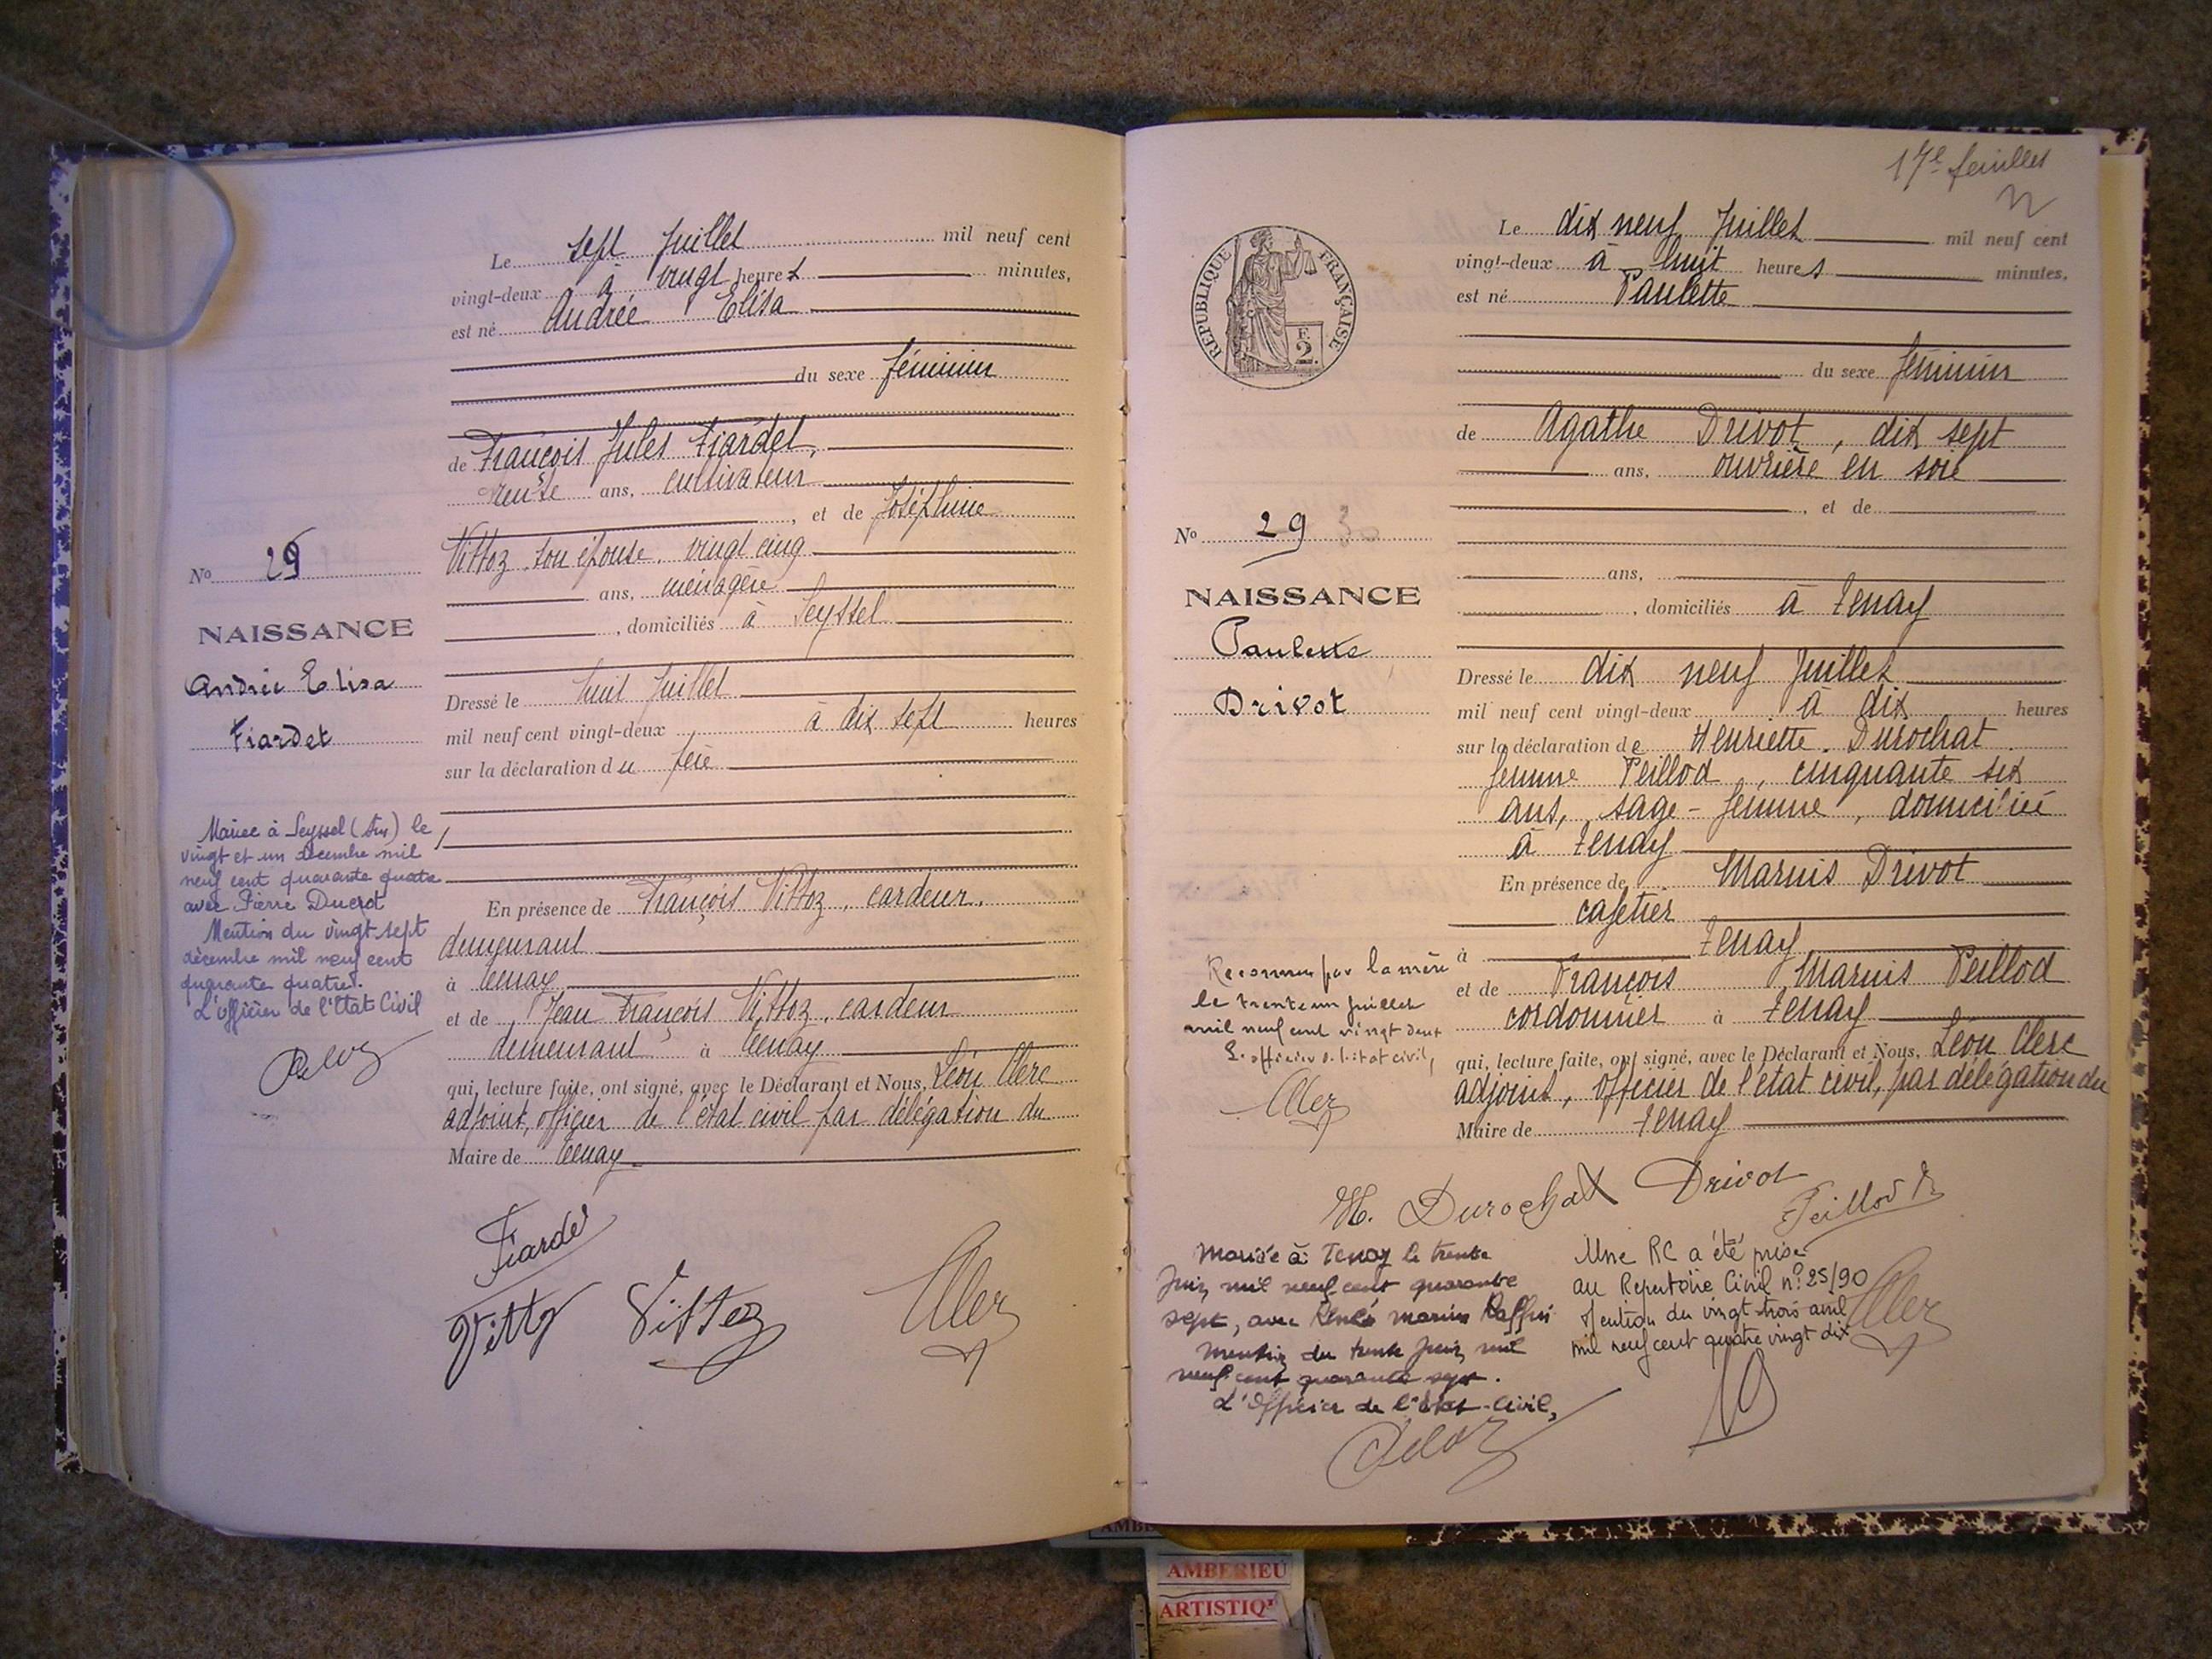 Le sept Juillet mil neuf cent
vingt-deux à vingt heures minutes,
est né Andrée Elisa
du sexe féminin
de François Jules Fiardet,
trente ans, cultivateur
, et de Joséphine
Vittoz son épouse, vingt cinq
ans, ménagère
, domiciliés à Seyssel
Dressé le huit Juillet
mil neuf cent vingt-deux à dix sept heures
sur la déclaration du père
En présence de François Vittoz, cardeur,
demeurant
à Tenay
et de Jean François Vittoz, cardeur
demeurant à Tenay
qui, lecture faite, ont signé, avec le Déclarant et Nous, Léon Clerc
adjoint, officier de l'état civil par délégation du
Maire de Tenay
Fiardet
Vittoz Vittoz Clerc
No 29
NAISSANCE
Andrée Elisa
Fiardet
Mariée à Seyssel (Ain) le
vingt et un décembre mil
neuf cent quarante quatre
avec Pierre Ducrot
Mention du vingt sept
décembre mil neuf cent
quarante quatre.
L'officier de l'Etat Civil
17e feuillet
REPUBLIQUE FRANÇAISE
F.
2.
Le dix neuf Juillet mil neuf cent
vingt-deux à huit heures minutes,
est né Paulette
du sexe féminin
de Agathe Drivot, dix sept
ans, ouvrière en soie
, et de
ans,
, domiciliés à Tenay
Dressé le dix neuf Juillet
mil neuf cent vingt-deux à dix heures
sur la déclaration de Henriette Durochat
femme Peillod, cinquante six
ans, sage-femme, domiciliée
à Tenay
En présence de Marius Drivot
cafetier
à Tenay
et de François Marius Peillod
cordonnier à Tenay
qui, lecture faite, ont signé, avec le Déclarant et Nous, Léon Clerc
adjoint, officier de l'état civil, par délégation du
Maire de Tenay
No 29 30
NAISSANCE
Paulette
Drivot
Reconnue par la mère
le trente un juillet
mil neuf cent vingt deux
L'officier de l'état civil,
Clerc
H. Durochat Drivot
Peillod
Clerc
Mariée à Tenay le trente
Juin mil neuf cent quarante
sept, avec René Marius Raffin
Mention du trente Juin mil
neuf cent quarante sept.
L'Officier de l'Etat-Civil,
Une RC a été prise
au Repertoire Civil n° 25/90
Mention du vingt trois avril
mil neuf cent quatre vingt dix
AMBERIEU
ARTISTIQ